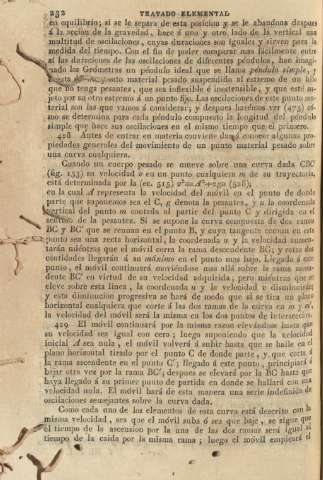 232 TRATADO ELEMENTAL
en equilibrio; si se le separa de esta posicion y se le abandona despues
á la accion de la gravedad, hace á uno y otro lado de la vertical una
multitud de oscilaciones, cuyas duraciones son iguales y sirven para la
medida del tiempo. Con el fin de poder comparar mas facilmente entre
sí las duraciones de las oscilaciones de diferentes péndulos, han imagi-
nado los Geómetras un péndulo ideal que se llama péndulo simple, y
punto material pesado suspendido al extremo de un hilo
que no tenga pesantez, que sea inflexible é inextensible, y que esté su-
jeto por su otro extremo á un punto fijo. Las oscilaciones de este punto ma-
terial son las que vamos á considerar; y despues harémos ver (475) co-
mo se determina para cada péndulo compuesto la longitud del péndulo
simple que hace sus oscilaciones en el mismo tiempo que el primero.
428 Antes de entrar en materia conviene dar á conocer algunas pro-
piedades generales del movimiento de un punto material pesado sobre
una curva cualquiera.
Cuando un cuerpo pesado se mueve sobre una curva dada CBC'
(fig. 153) su velocidad v en un punto cualquiera m de su trayectoria,
está determinada por la (ec. 513)
en la cual A representa la velocidad del móvil en el punto de donde
parte que suponemos sea el C, g denota la pesantez, y u la coordenada
vertical del punto m contada al partir del punto C y dirigida en el
sentido de la pesantez. Si se supone la curva compuesta de dos ramas
BC y BC' que se reunan en el punto B, y cuya tangente comun en este
punto sea una recta horizontal, la coordenada u y la velocidad aumen-
tarán miéntras que el móvil corra la rama descendente BC; y estas dos
cantidades llegarán á su máximo en el punto mas bajo. Llegado á este
punto, el móvil continuará moviéndose mas allá sobre la rama ascen-
dente BC' en virtud de su velocidad adquirida, pero miéntras que se
eleve sobre esta linea, la coordenada u y la velocidad v disminuirán
y esta diminucion progresiva se hará de modo que si se tira un plano
horizontal cualquiera que corte á las dos ramas de la curva en m y m',
la velocidad del móvil será la misma en los dos puntos de interseccion.
429 El móvil continuará por la misma razon elevándose hasta que
su velocidad sea igual con cero; luego suponiendo que la velocidad
inicial A sea nula, el móvil volverá á subir hasta que se halle en el
plano horizontal tirado por el punto C de donde parte, y que corta á
la rama ascendente en el punto C'; llegado á este punto, principiará á
bajar otra vez por la rama BC'; despues se elevará por la BC hasta que
haya llegado á su primer punto de partida en donde se hallará con una
velocidad nula. El móvil hará de esta manera una serie indefinida de
oscilaciones semejantes sobre la curva dada.
Como cada uno de los elementos de esta curva está descrito con la
misma velocidad, sea que el móvil suba ó sea que baje, se sigue que
el tiempo de la ascension por la una de las dos ramas será igual al
tiempo de la caida por la misma rama; luego el móvil empleará el